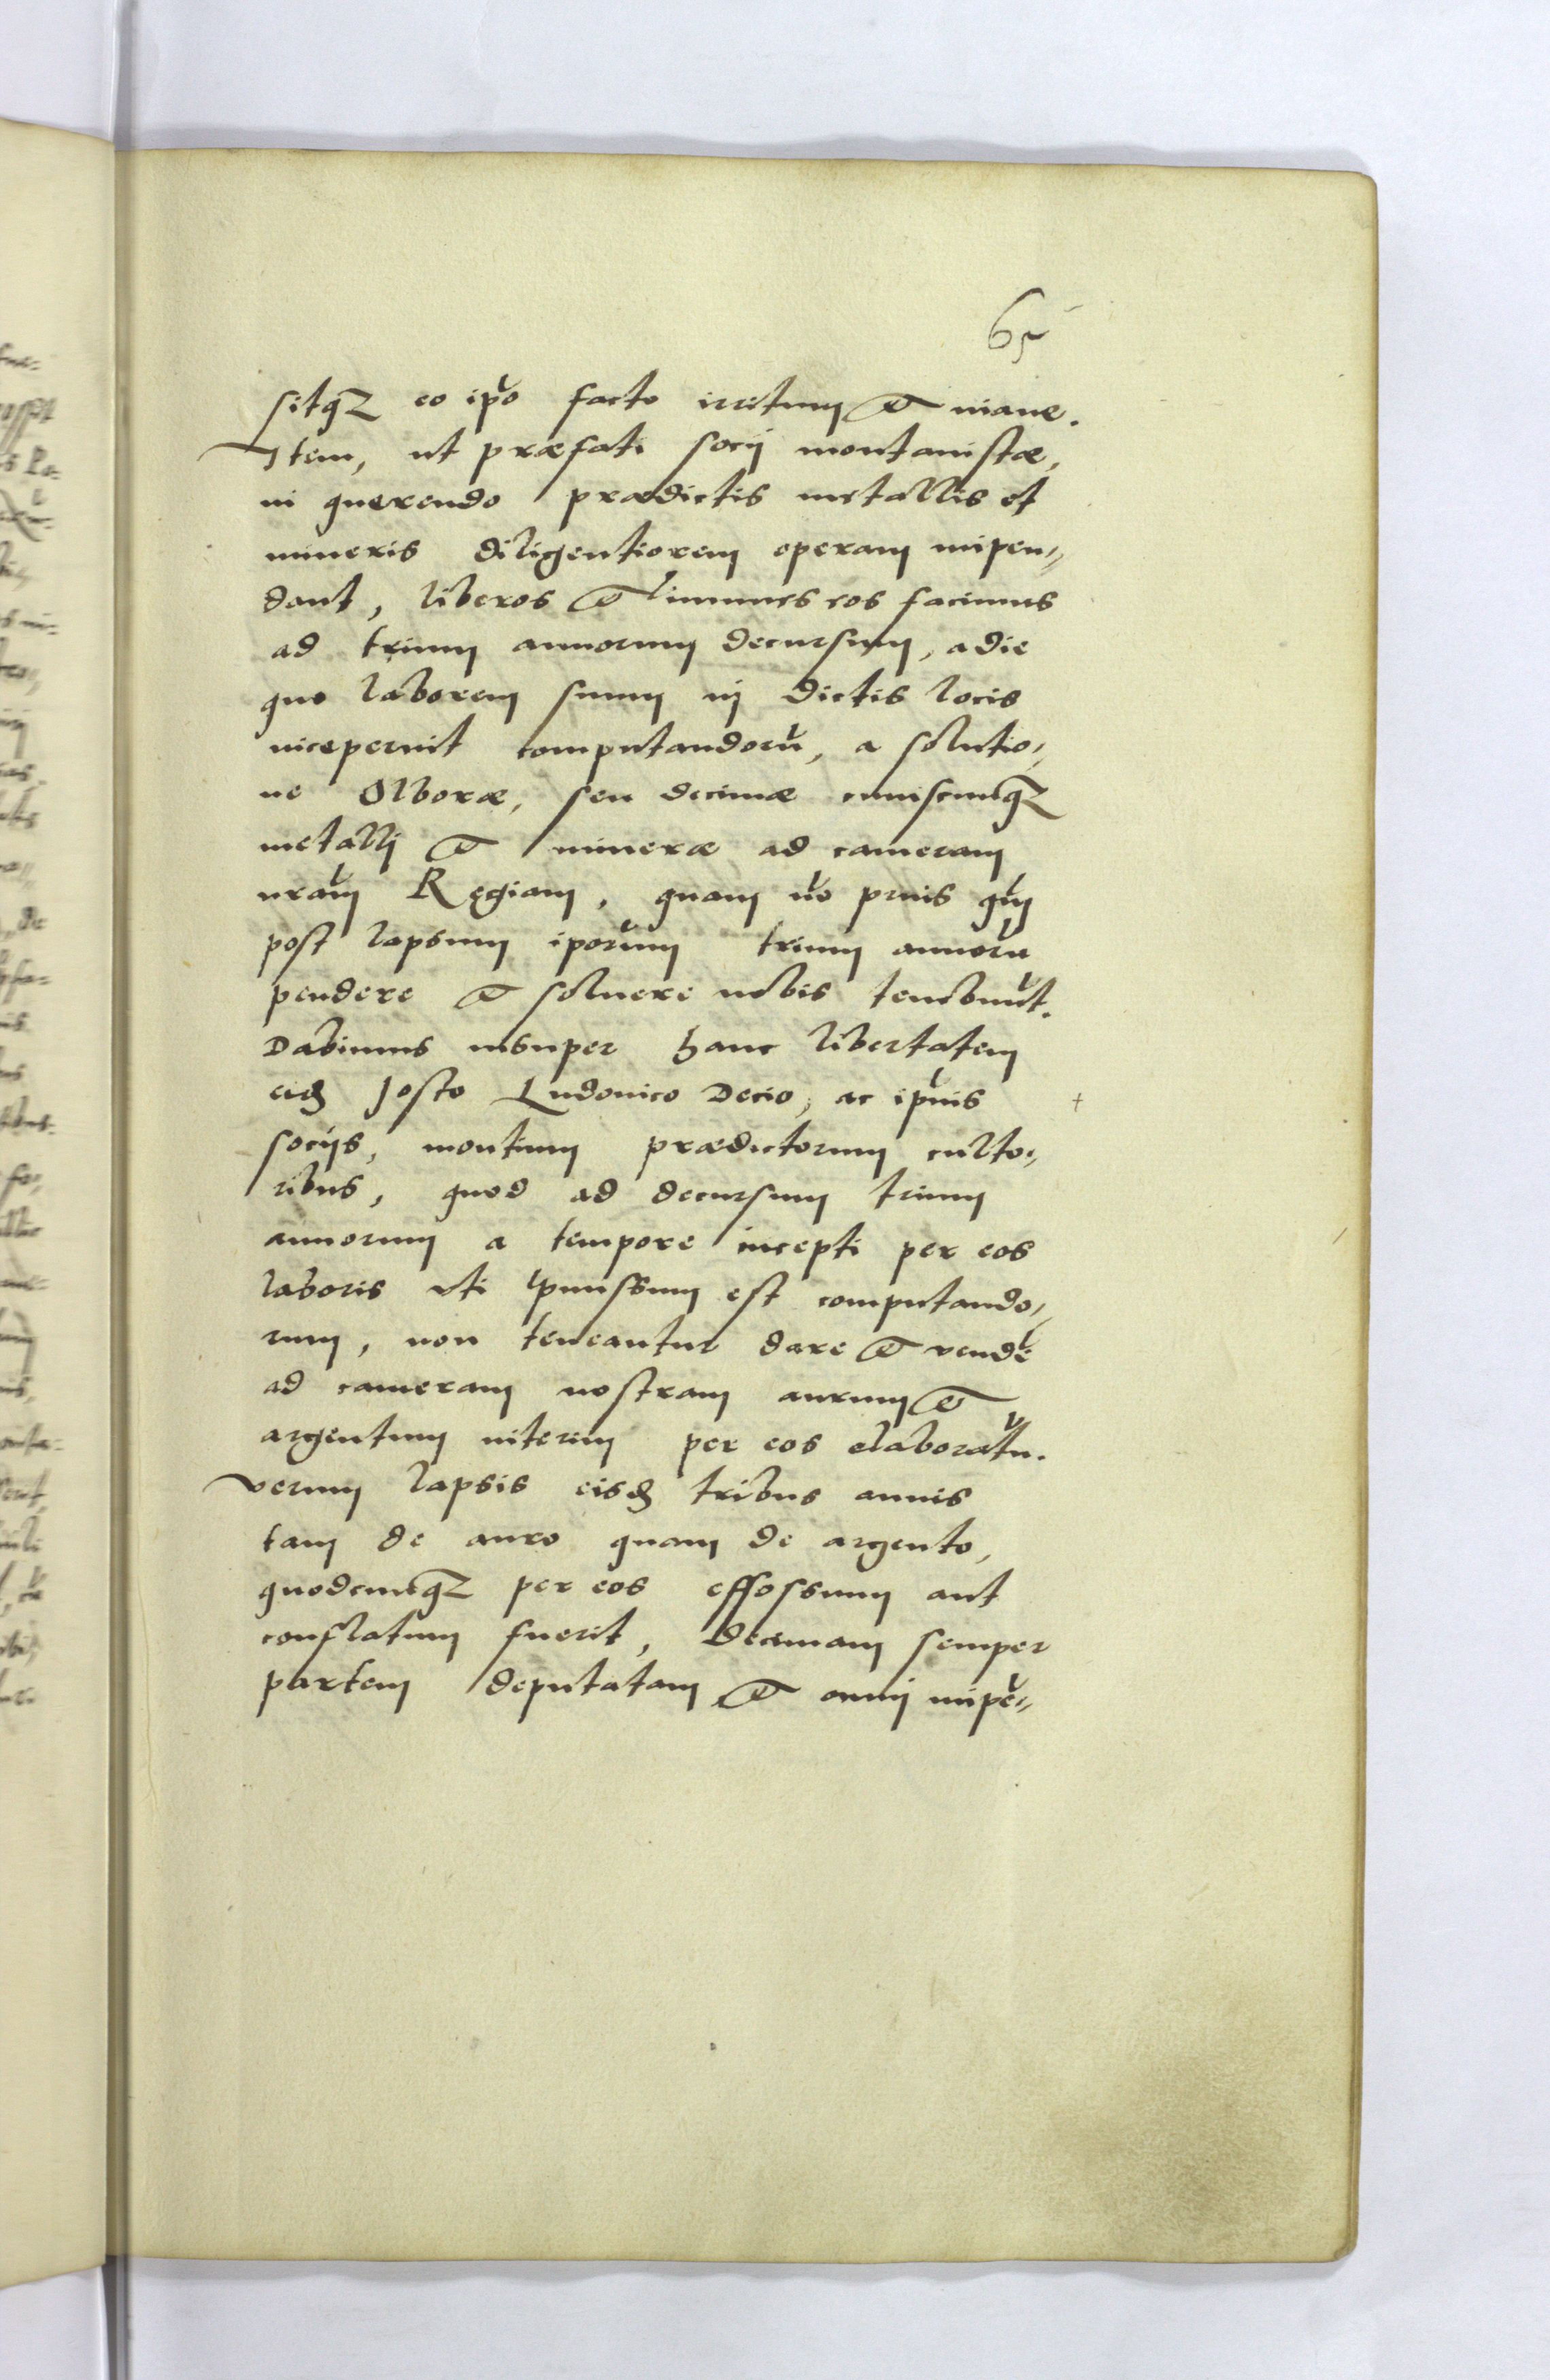 65
sitq3 eo ipo facto irritum et inane.
Item, ut præfati socij montanistæ,
in querendo prædictis metallis et
mineris diligentiorem operam inpen⸗
dant, liberos et immunes eos facimus
ad trium annorum decursum, a die
quo laborem suum in dictis locis
inceperint computandorū, a solutio⸗
ne Olboræ, seu decimæ cuiuscunq3
metalli et mineræ ad cameram
nram Regiam, quam no prius qm
post lapsum iporum trium annorū
pendere et soluere nobis tenebunt.
Dabimus insuper hanc libertatem
eid Josto Ludouico Decio, ac ipius
socijs, montium prædictorum culto⸗
ribus, quod ad decursum trium
annorum a tempore incepti per eos
laboris uti pmissum est computando⸗
rum, non teneantur dare et vende
ad cameram nostram aurum et
argentum interim per eos elaboratū.
Verum lapsis eisd tribus annis
tam de auro quam de argento,
quodcunq3 per eos effossum aut
conflatum fuerit, decimam semper
partem deputatam et omni inpe⸗